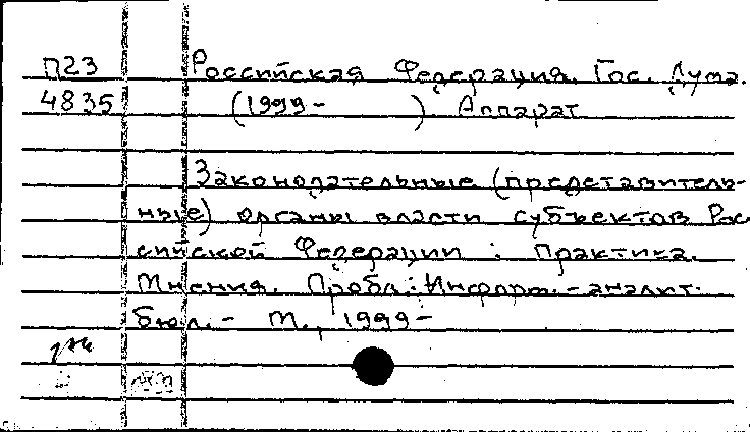 П23 Российская Федерация. Гос. Дума.
4835 (1999- ) Аппарат
Законодательные (представитель-
ные) органы власти субъектов Рос
сийской Федерации : Практика.
Мнения. Пробл.: Информ.-аналит.
бюл. - М., 1999-